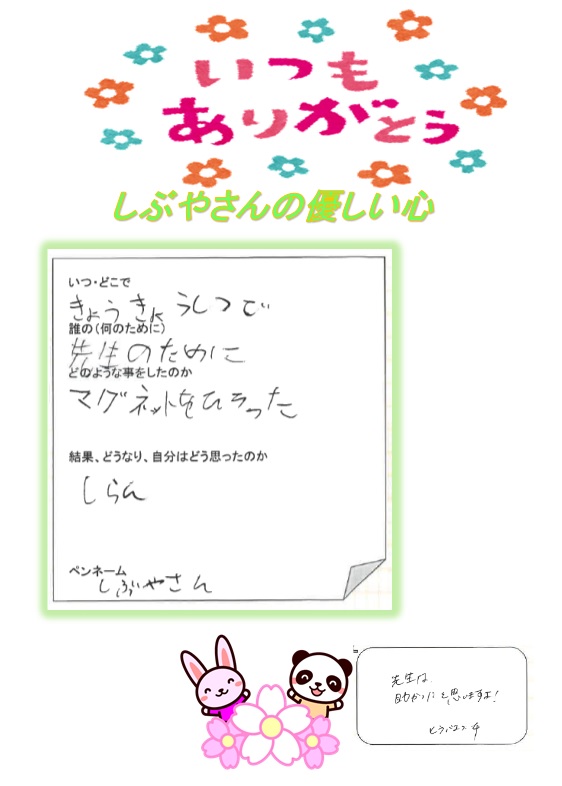 いつも
ありがとう
しぶやさんの優しい心
いつ・どこで
きょうきょうしつで
誰の(何のために)
先生のために
どのような事をしたのか
マグネットをひろった
結果、どうなり、自分はどう思ったのか
しらん
ペンネーム
しぶやさん
先生は
助かったと思いますよ!